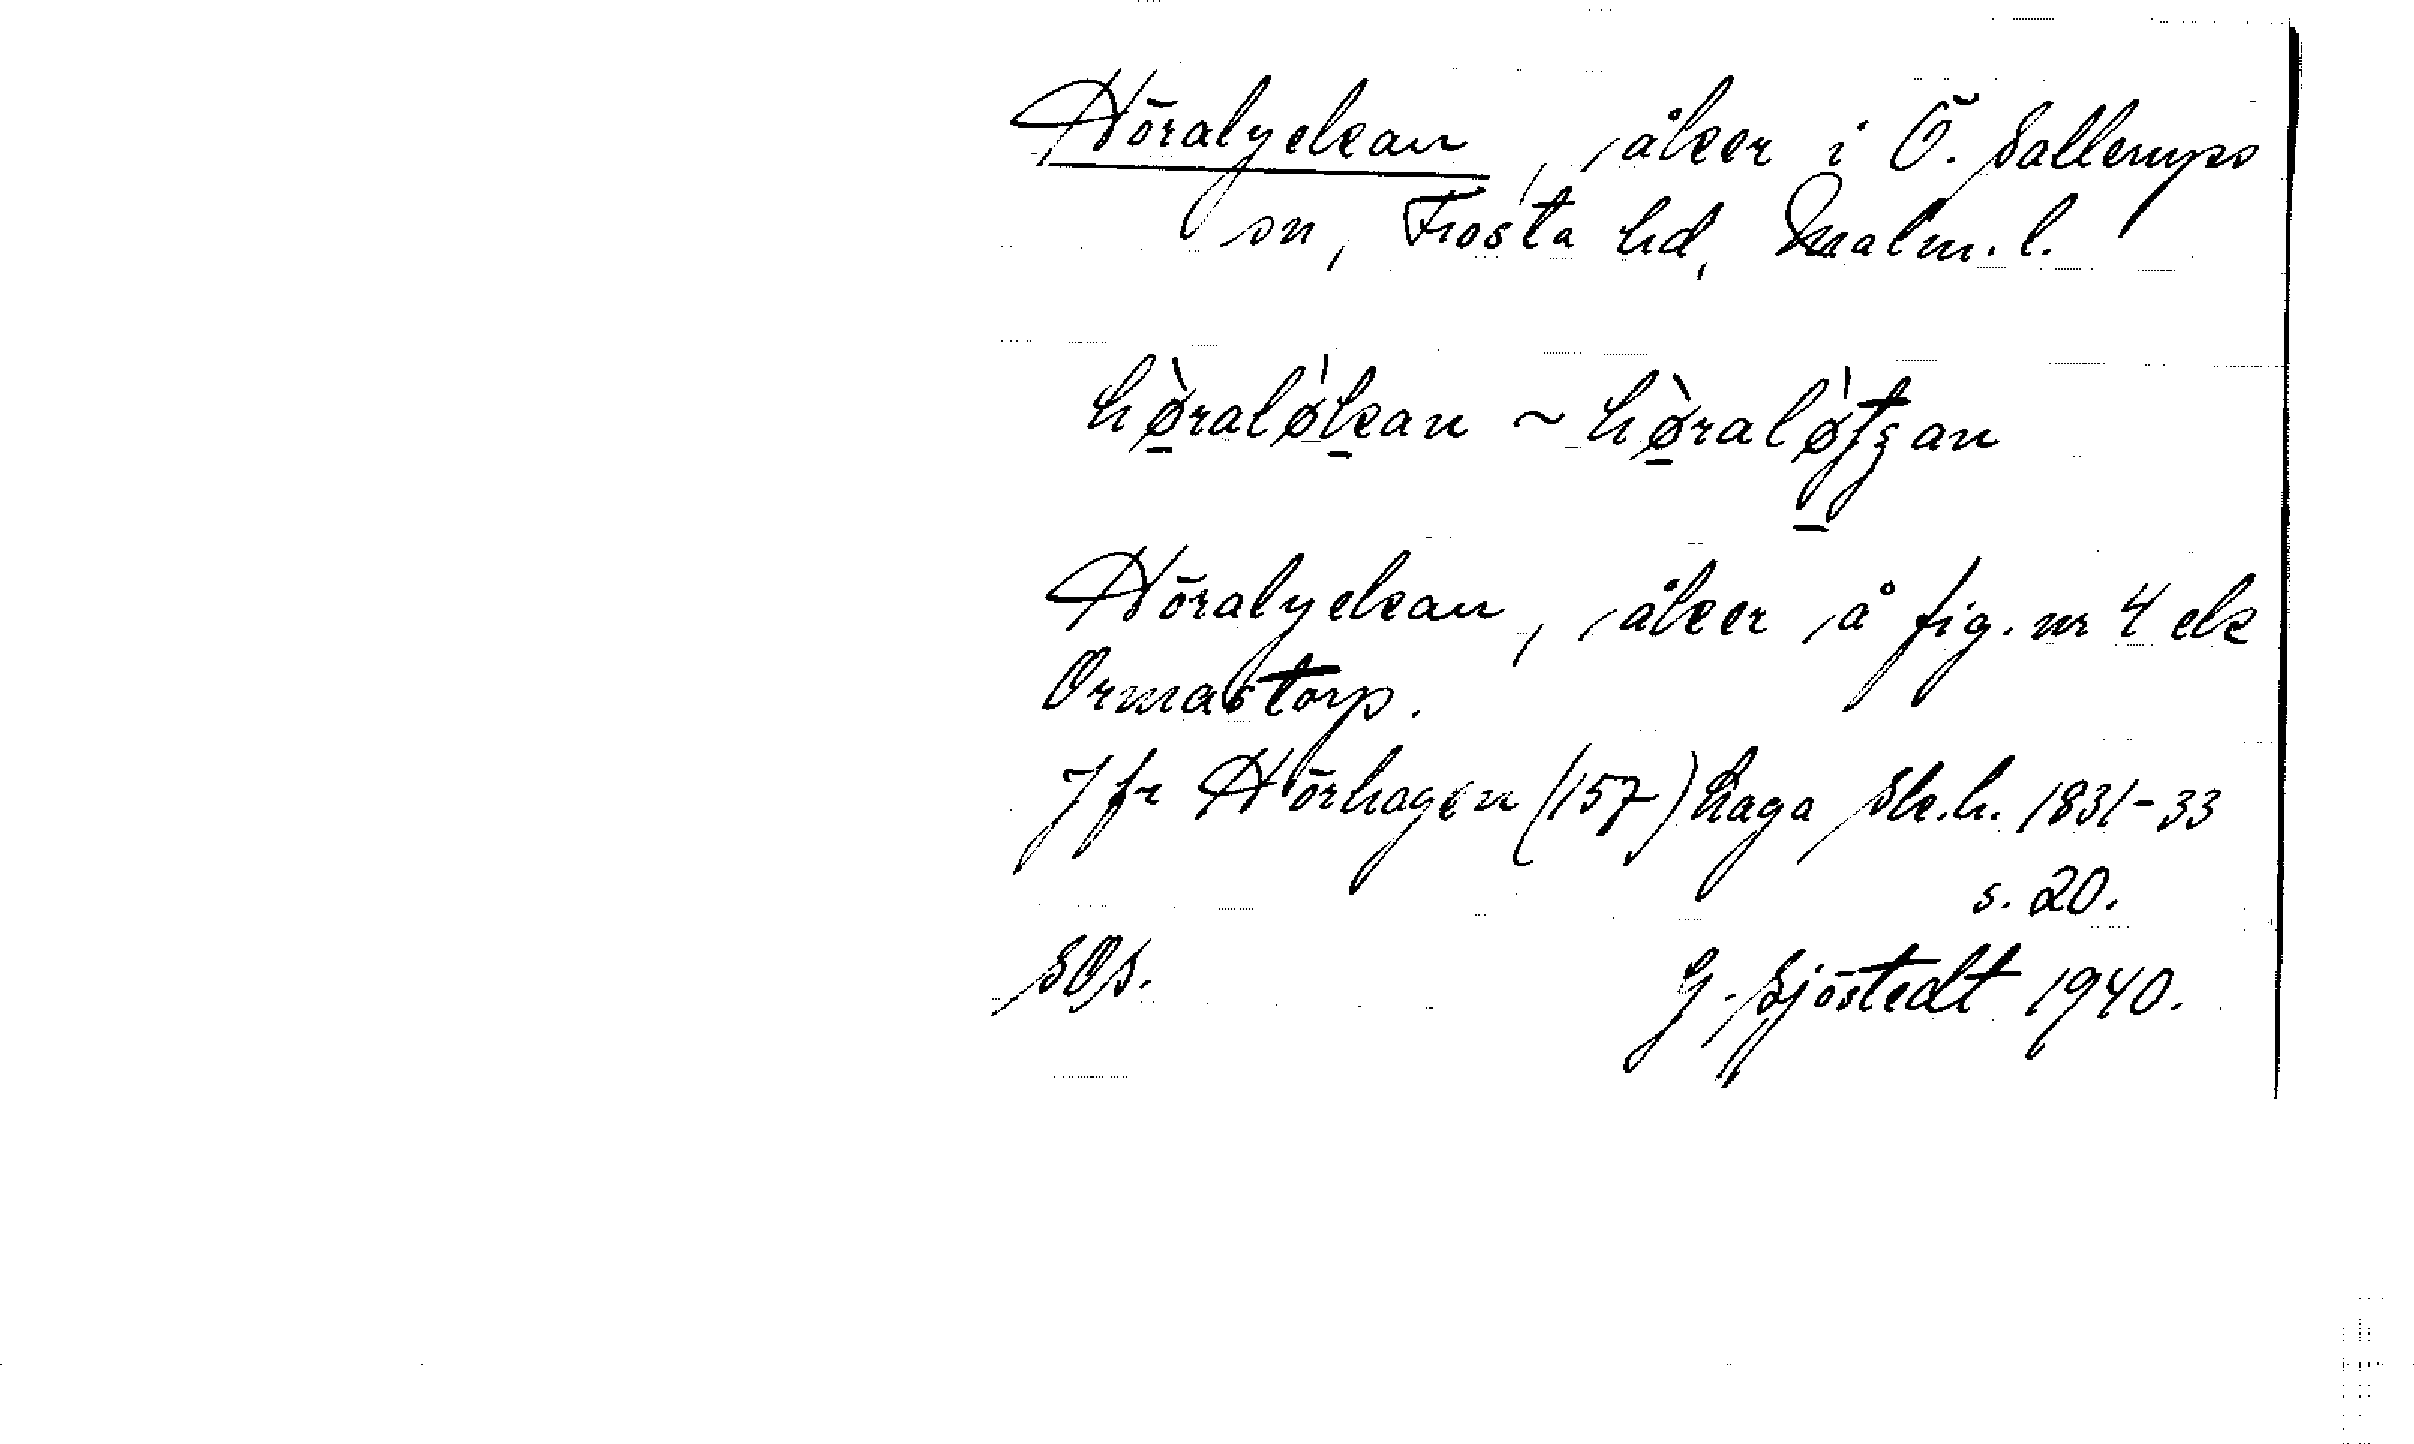 Höralyckan, åker i Ö. Sallerups
sn, Frosta hd, Malm. l.
hø̀raløkan ~ hø̀raløtʒan
Höralyckan, åker å fig. nr 4 ek
Ormastorp.
Jfr Hörhagen (157) haga Sk.h. 1831-33
s. 20.
SOs.
G. Sjöstedt 1940.